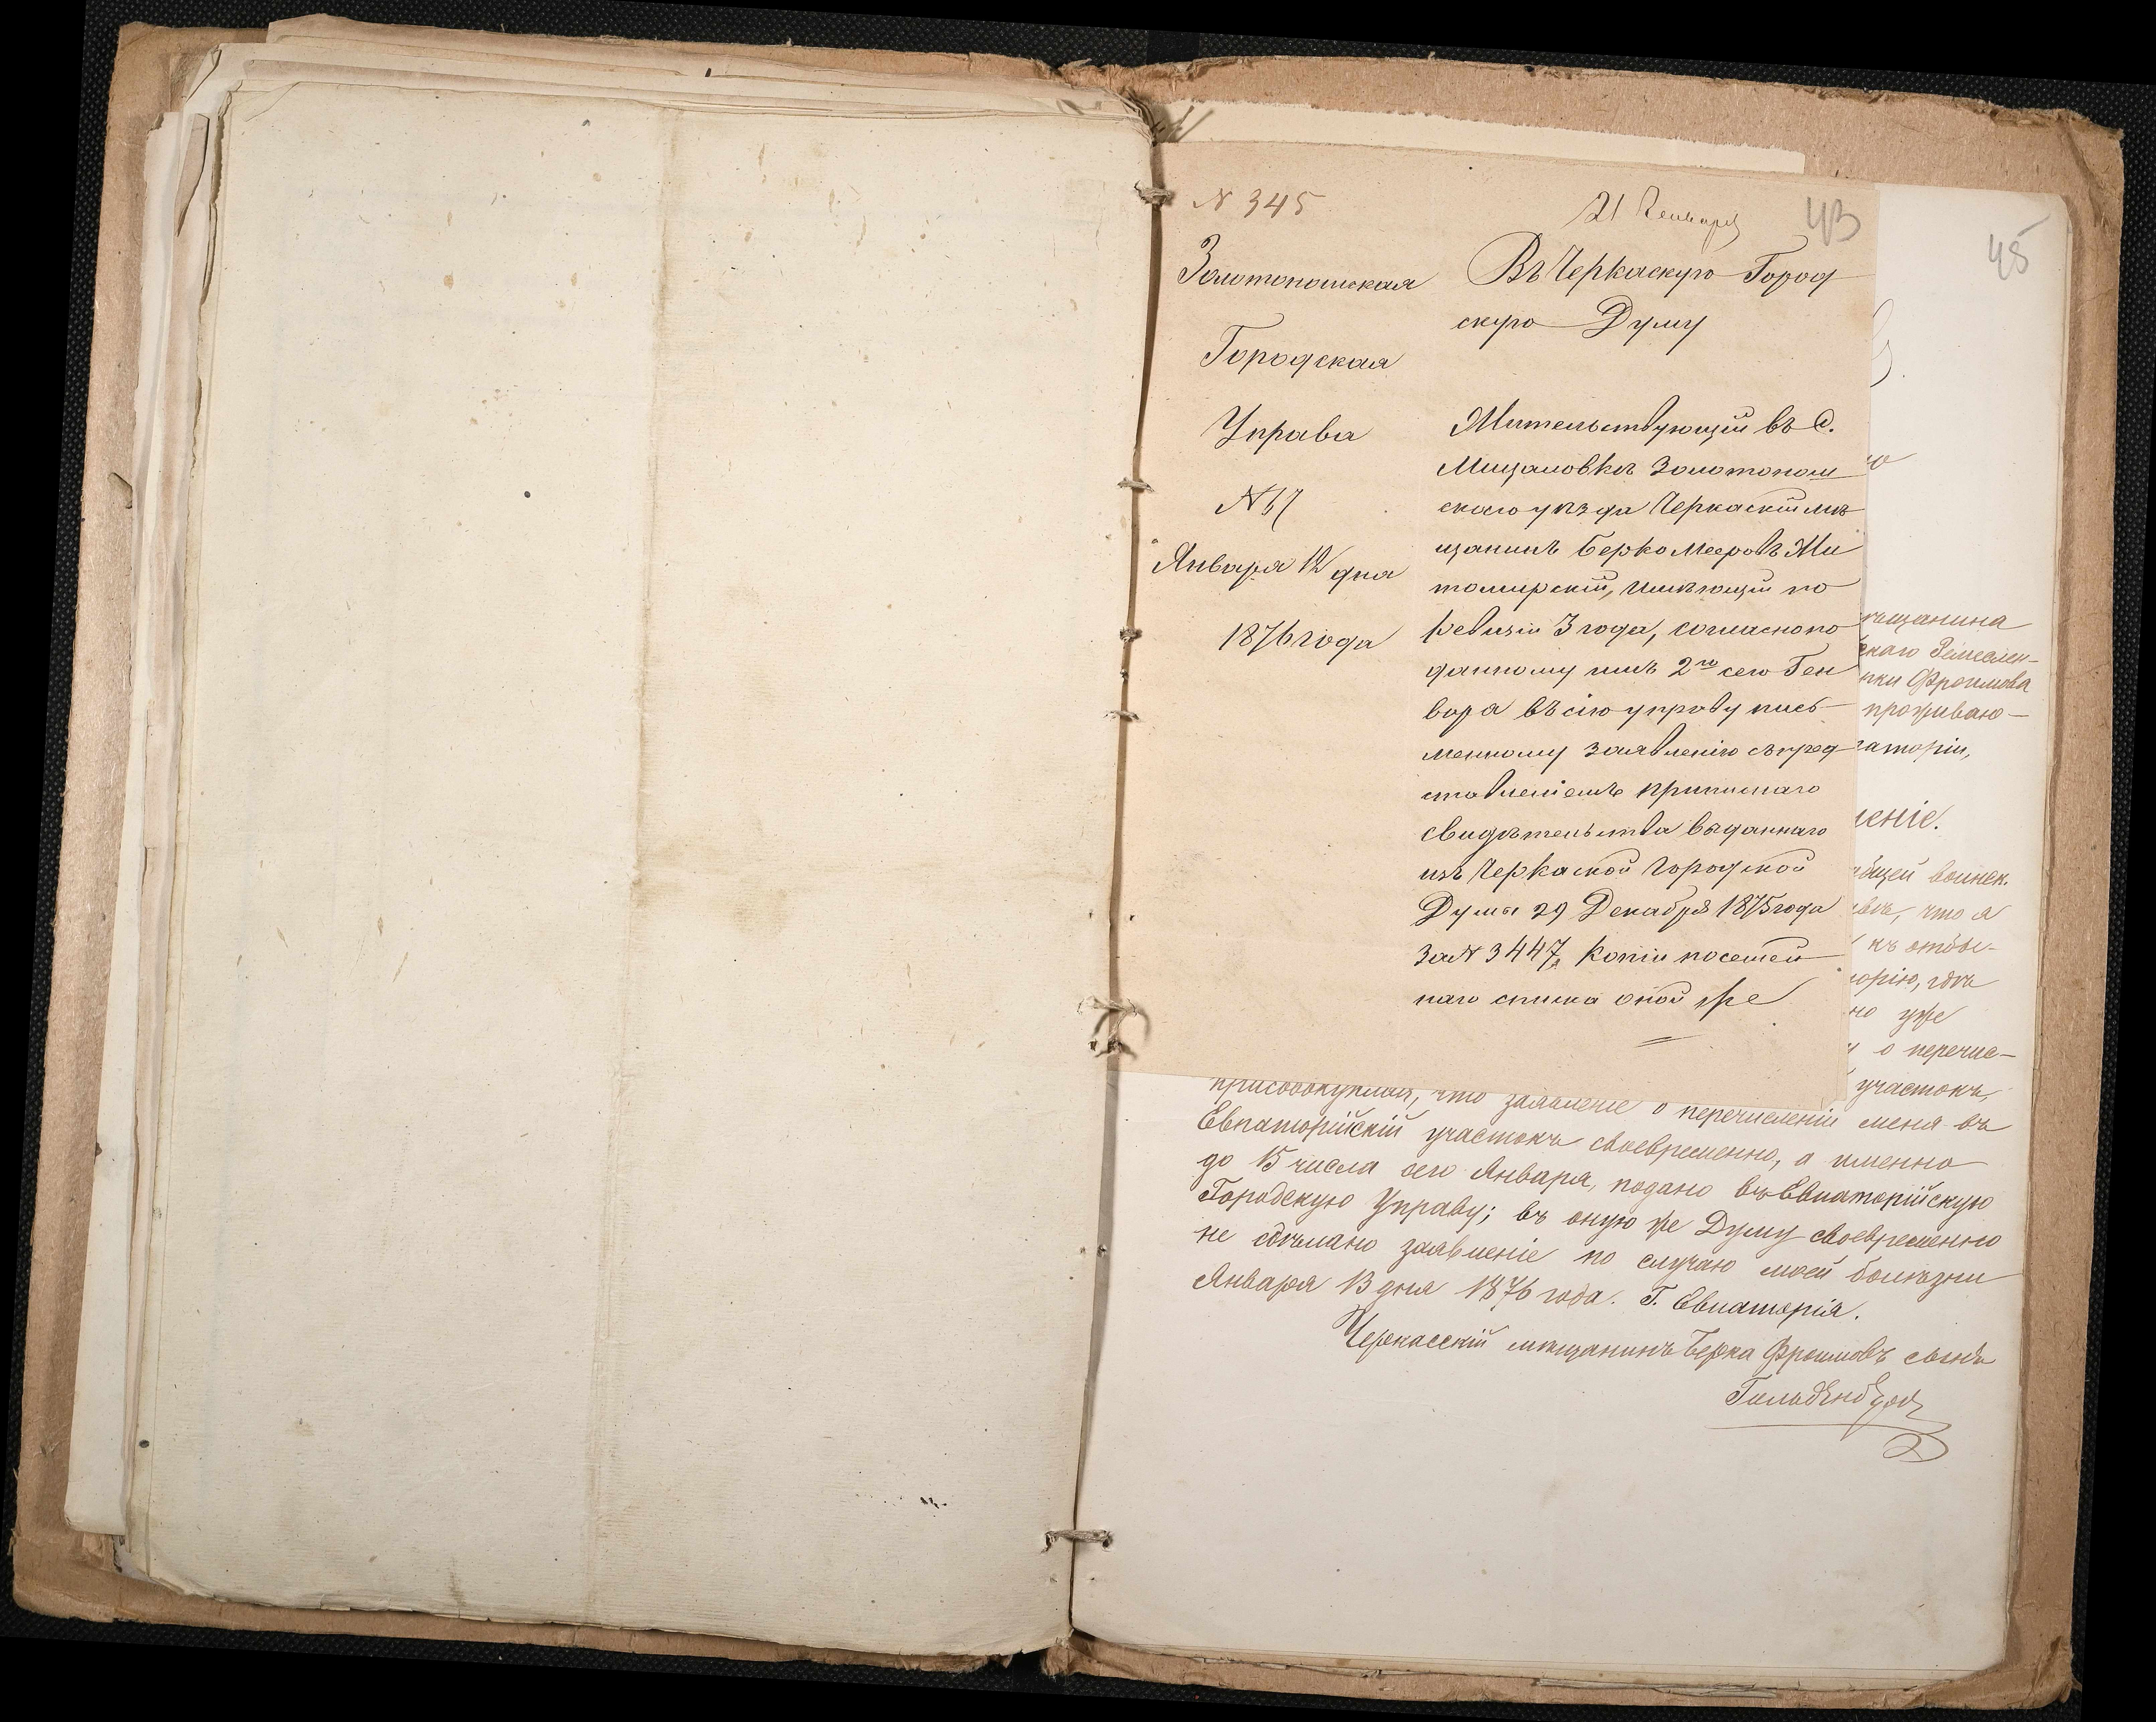 N 345
21 Генваря
43
Золотоношская
Городская
Управа
N 67
Января 12 дня
1876 года
Въ Черкаскую Город
скую Думу
Жительствующий въ С.
Мицаловкѣ Золотонош
скаго уѣзда Черкаский мѣ
щанинъ Берко Мееровъ Жи
томирский, имѣющий по
Ревизіи 3 года, согласно по
данному имъ 2го сего Ген
вара въ сію управу пись
менному заявлению съ пред
ставленіемъ приписнаго
свидѣтельства выданнаго
изъ Черкаской Городской
Думы 29 Декабря 1875 года
за N 3447, Копіи посемей
наго списка оной же
45
мѣщанина
скаго Земеслен-
нки Фроимова
проживаю-
паторіи,
леніе.
общей воинск.
что я
къ отбы-
торію, гдѣ
но уже
о перечис-
участокъ,
присовокупляя, что заявленіе о перечисленіи меня въ
Евпаторійскій участокъ своевременно, а именно
до 15 числа сего Января, подано въ Евпаторійскую
Городскую Управу; въ оную же Думу своевременно
не сдѣлано заявленіе по случаю моей болѣзни
Января 13 дня 1876 года. Г. Евпаторія.
Черкасскій мѣщанинъ Берка Фроимовъ сынъ